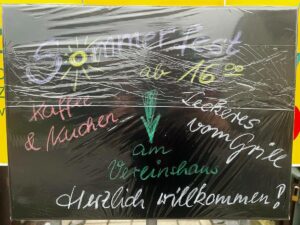 Sommerfest
ab 16⁰⁰
Kaffee
& Kuchen
Leckeres
vom Grill
am
Vereinshaus
Herzlich willkommen!